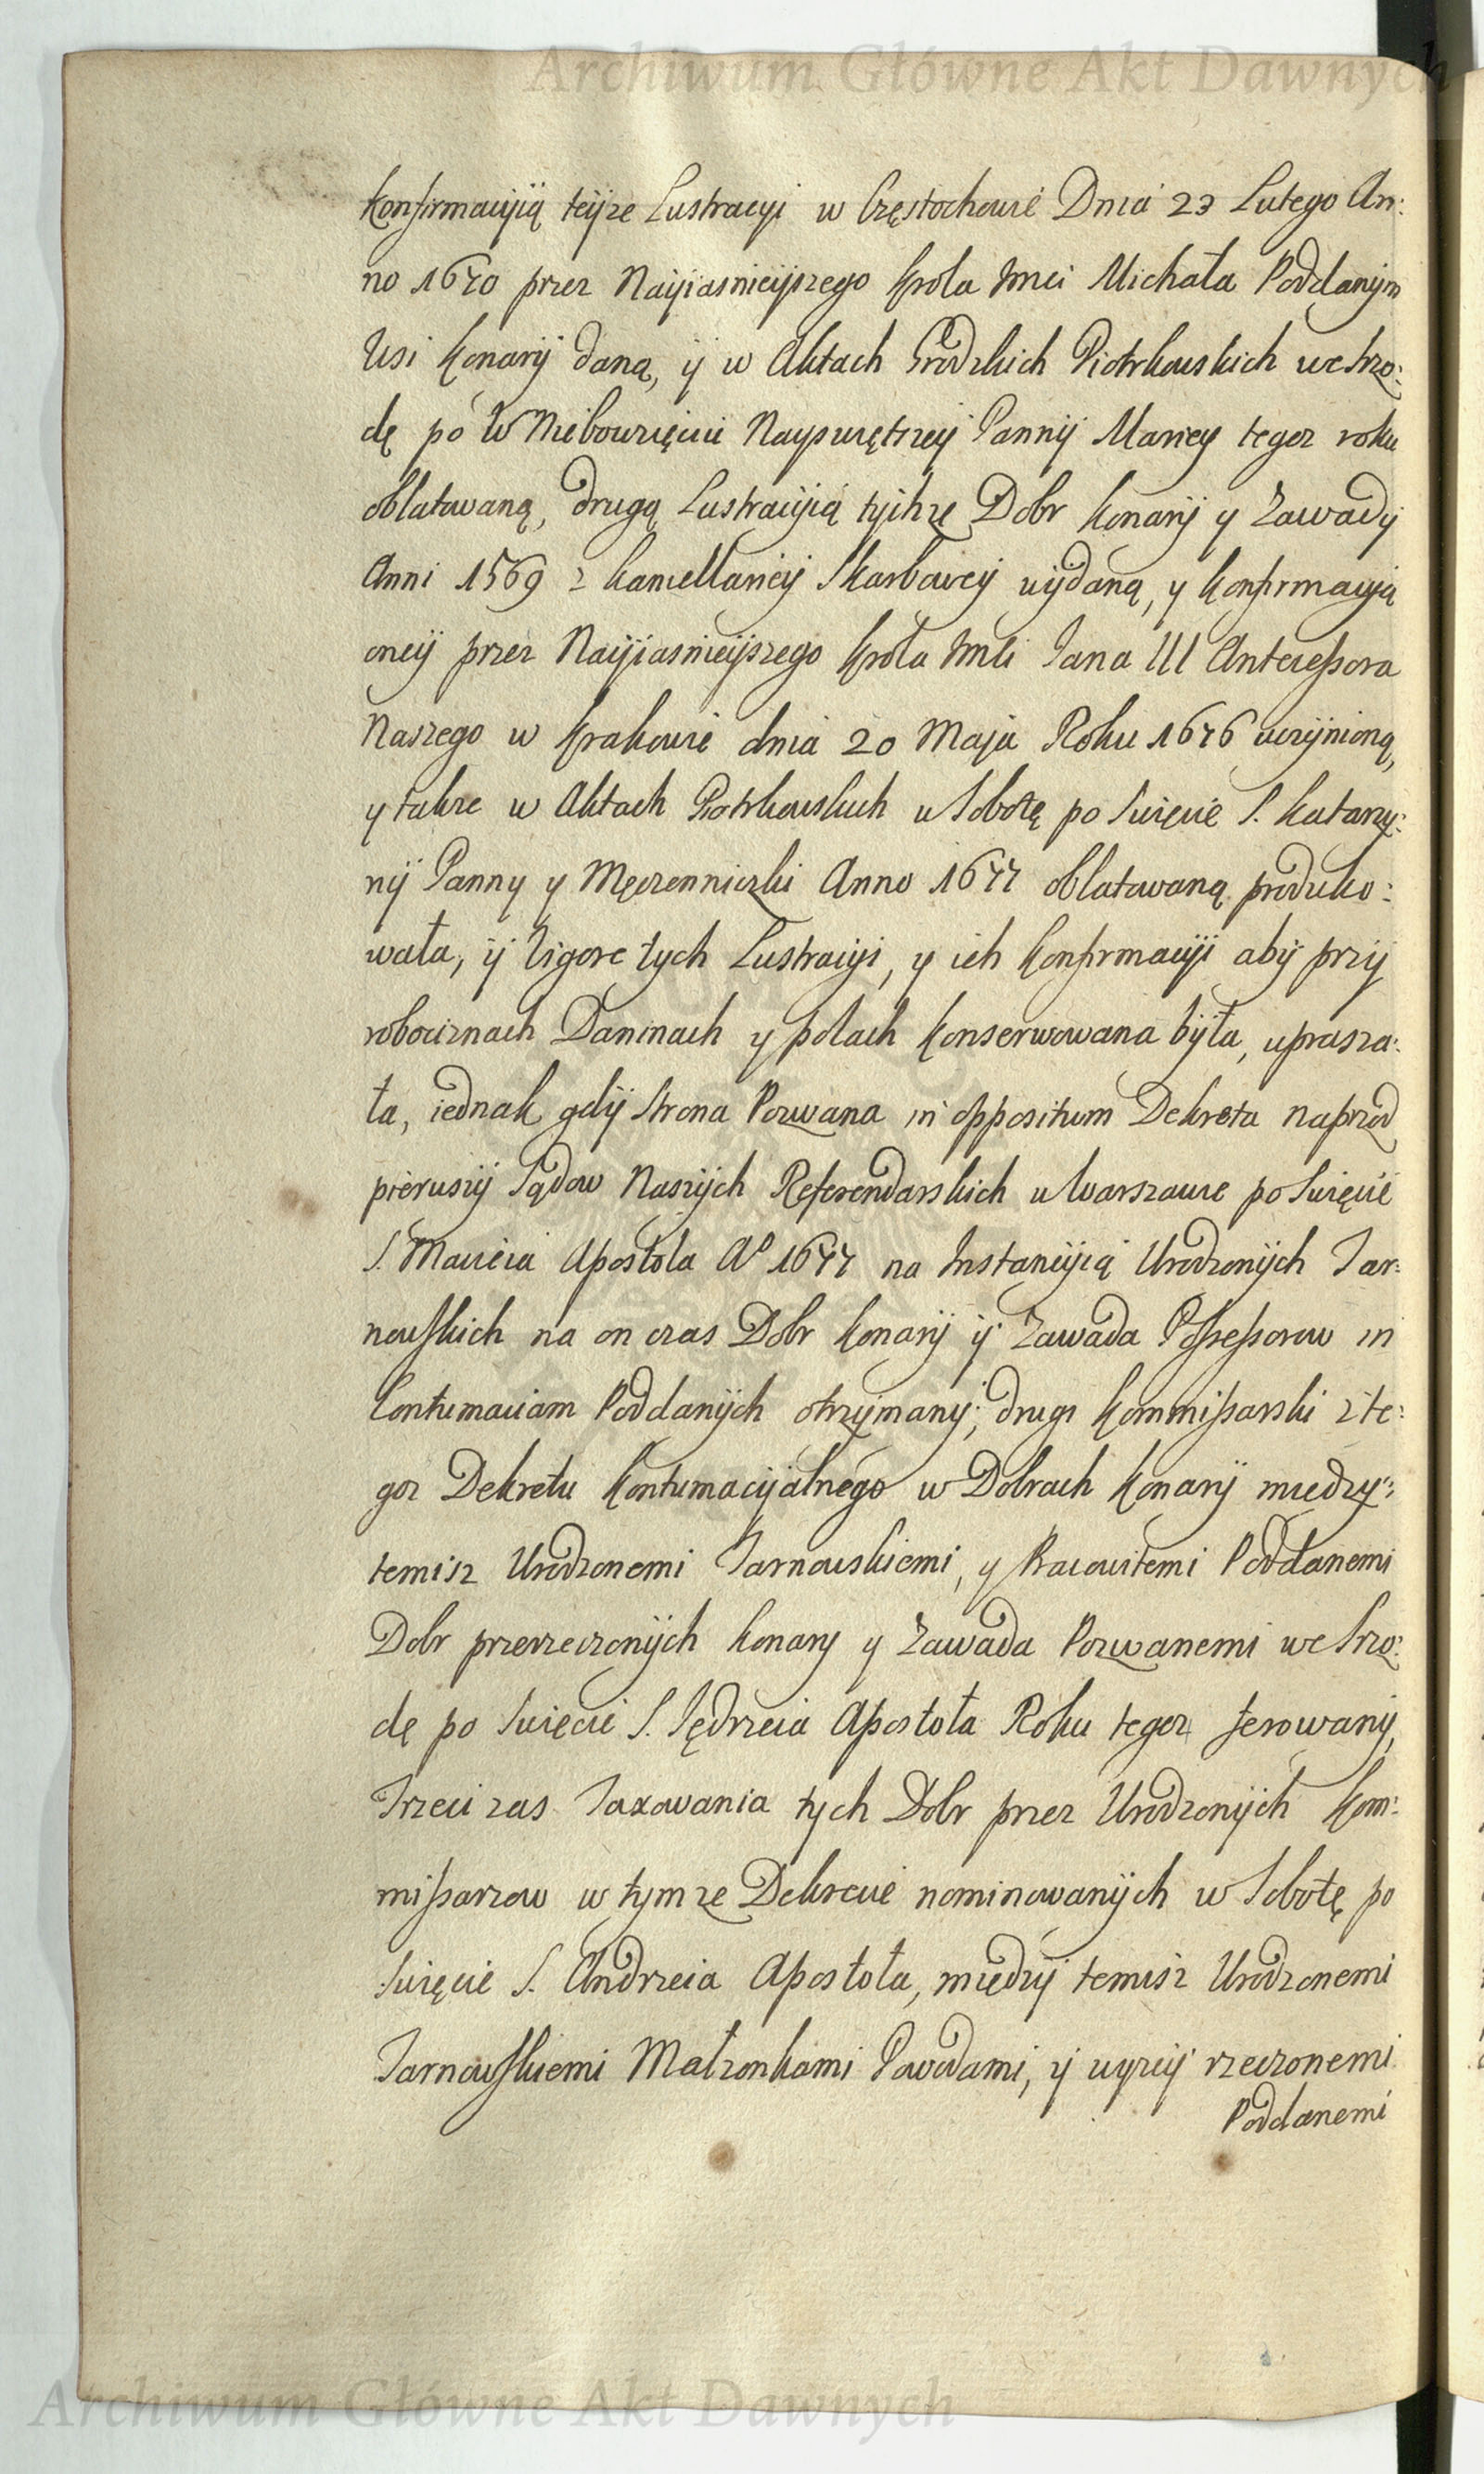 Archiwum Główne Akt Dawnych
Konfirmacyią teyże Lustracyi w Częstochowie Dnia 23 Lutego An:
no 1670 przez Nayiasnieyszego Krola Jmci Michała Poddanym
Wsi Konary daną, y w Aktach Grodzkich Piotrkowskich we Srzo:
dę po W Niebowzięciu Nayswiętszey Panny Maryey tegoz roku
oblatowaną, drugą Lustracyią tychże Dobr Konary y Zawady
Anni 1569 z Kancellaryey Skarbowey wydaną, y Konfirmacyią
oney przez Nayiasnieyszego Krola Jmci Jana III Antecessora
Naszego w Krakowie dnia 20 Maja Roku 1676 uczynioną,
y takze w Aktach Piotrkowskich w Sobotę po Swięcie S. Katarzy:
ny Panny y Męczenniczki Anno 1677 oblatowaną produko:
wała, y Vigore tych Lustracyi, y ich Konfirmacyi aby przy
robociznach Daninach y polach Konserwowana była, uprasza:
ła, iednak gdy Strona Pozwana in oppositum Dekreta naprzod
pierwszy Sądow Naszych Referendarskich w Warszawie po Swięcie
S. Macieia Apostoła Aº 1677 na Instancyią Urodzonych Tar:
nowskich na on czas Dobr Konary y Zawada Possessorow in
Contumaciam Poddanych otrzymany; drugi Kommissarski z te:
goz Dekretu Kontumacyalnego w Dobrach Konary miedzy:
temisz Urodzonemi Tarnowskiemi, y Pracowitemi Poddanemi
Dobr przerzeczonych Konary y Zawada Pozwanemi we Srzo:
dę po Swięcie S. Jędrzeia Apostoła Roku tegoz ferowany,
Trzeci zas Taxowania tych Dobr przez Urodzonych Kom:
missarzow w tymze Dekrecie nominowanych w Sobotę po
Swięcie S. Andrzeia Apostoła, między temisz Urodzonemi
Tarnowskiemi Małzonkami Powodami, y wyzey rzeczonemi
Poddanemi
Archiwum Główne Akt Dawnych